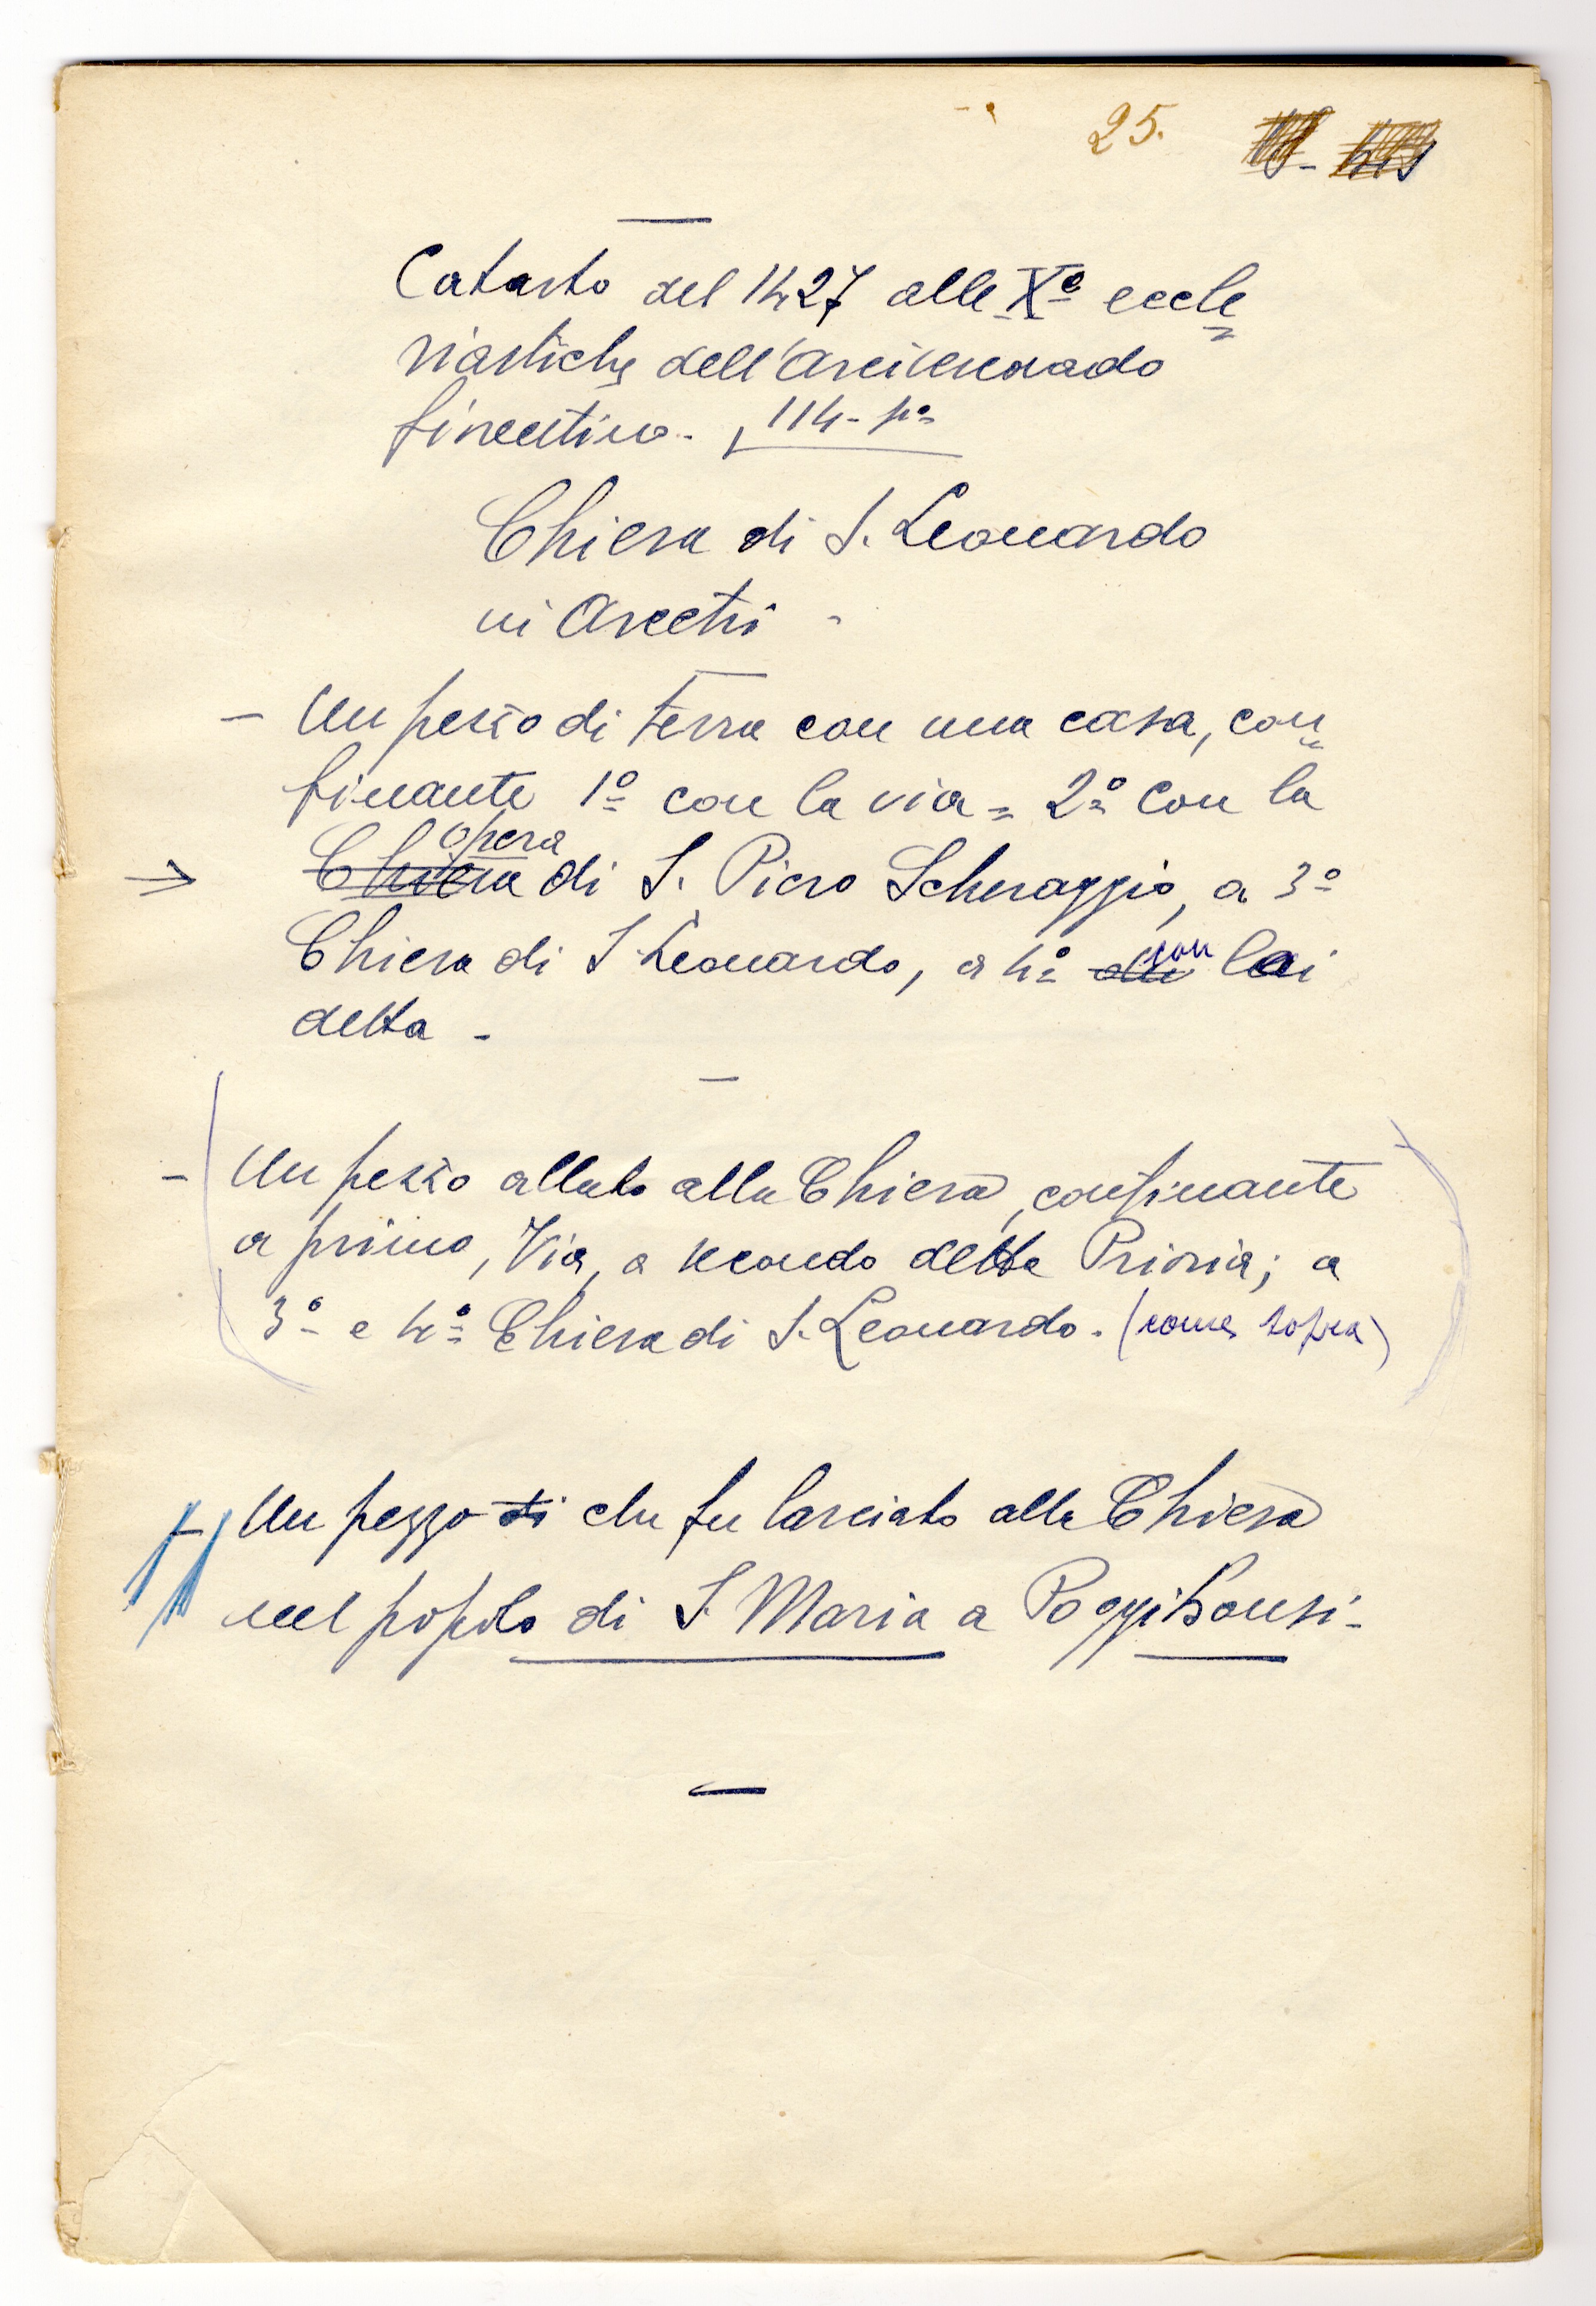 25.
Catasto del 1427 alle Xe eccle
siastiche dell'Arcivescovado
fiorentino. 114-
Chiesa di S. Leonardo
in Arcetri -
- Un pezzo di terra con una casa, con
finante 1º con la via = 2º con la
opera
Chiesa di S. Piero Scheraggio, a 3º
Chiesa di S. Leonardo, a 4º con
detta -
- Un pezzo allato alla Chiesa, confinante
a primo, Via, a secondo detta Prioria; a
3º e 4º Chiesa di S. Leonardo. (come sopra)
Un pezzo di che fu lasciato alla Chiesa
nel popolo di S. Maria a Poggibonsi-